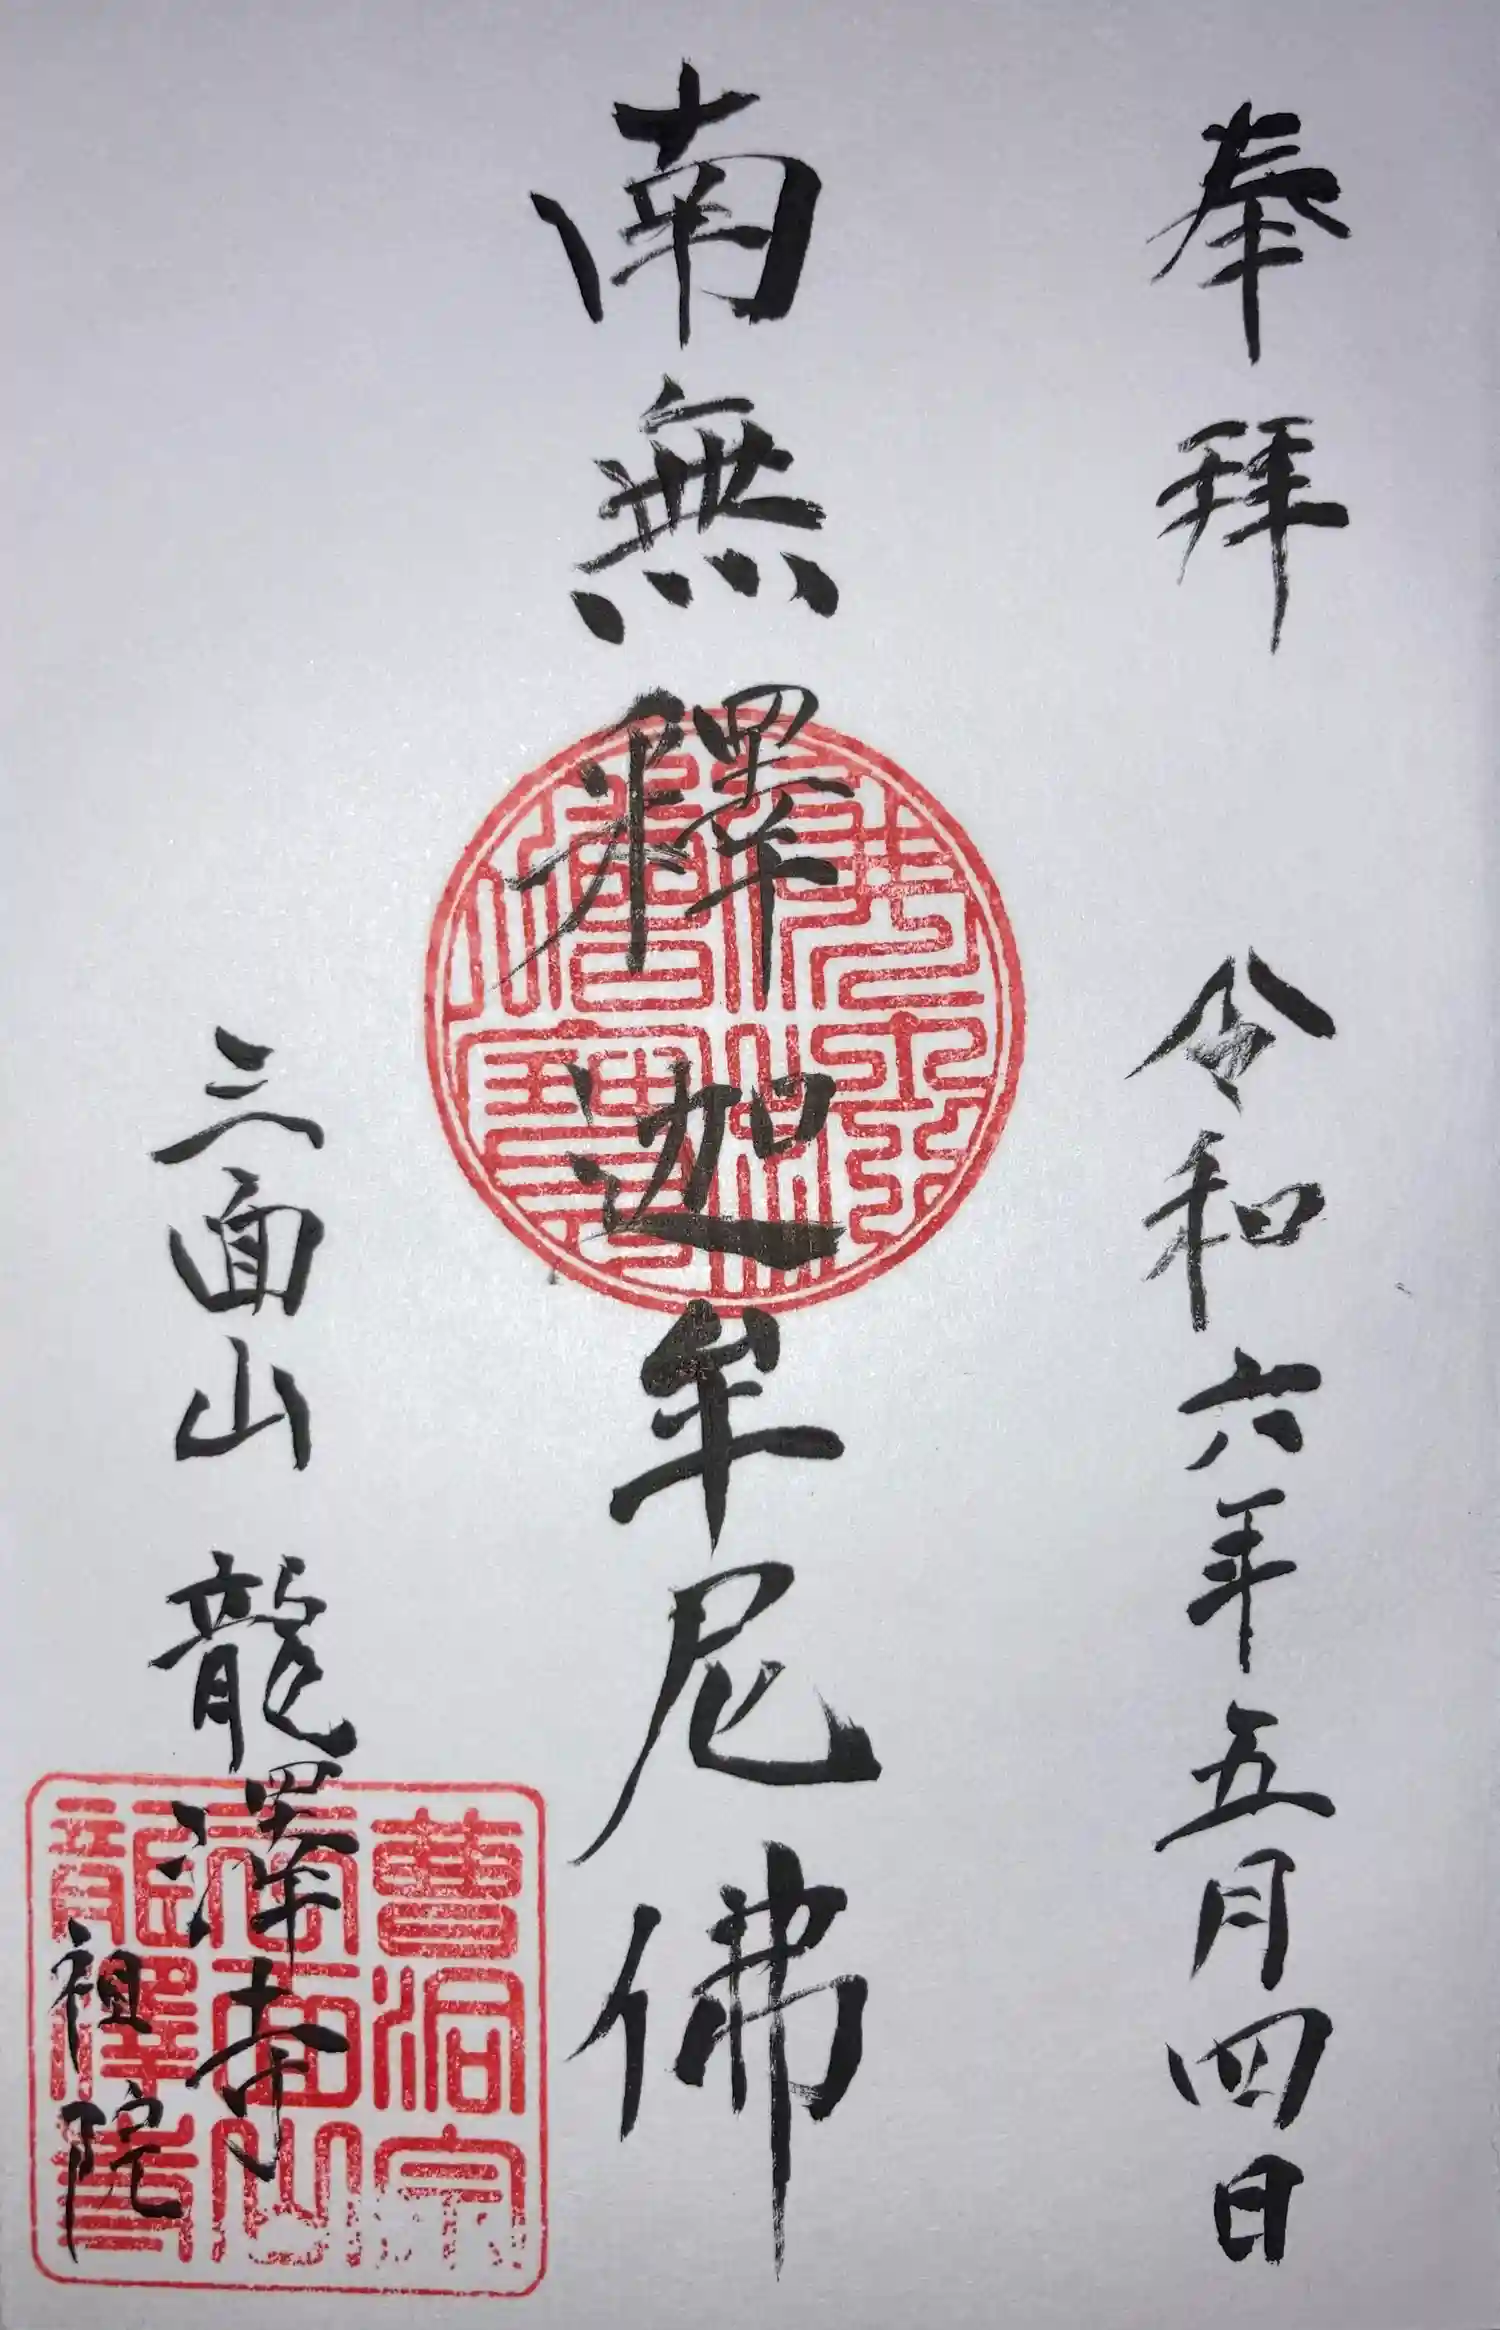 奉拜 令和六年五月四日
南無釋迦牟尼佛
佛法僧寶
三面山 龍澤寺
祖院
曹洞宗
三面山
龍澤寺